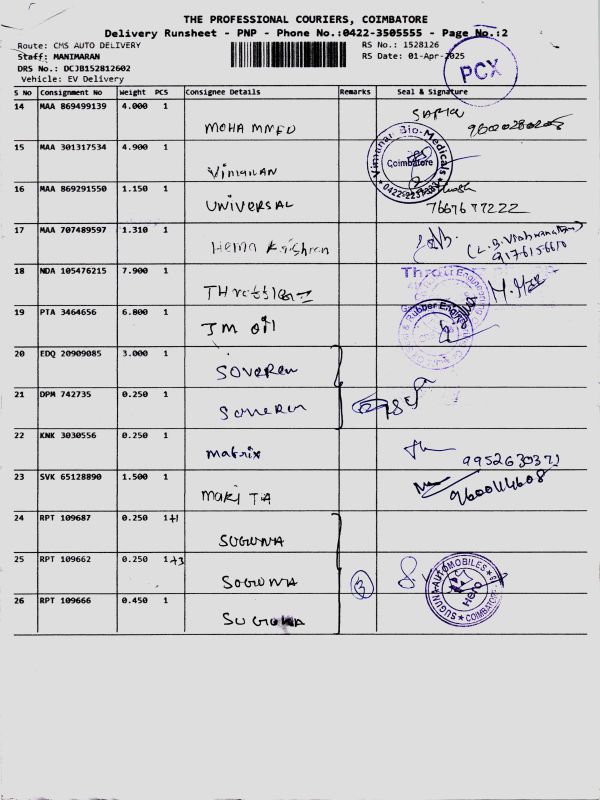 THE PROFESSIONAL COURIERS, COIMBATORE
Delivery Runsheet - PNP - Phone No.:0422-3505555 - Page No.:2
Route: CMS AUTO DELIVERY
RS No.: 1528126
Staff: MANIMARAN
RS Date: 01-Apr-2025
DRS No.: DCJB152812602
Vehicle: EV Delivery
PCX
S No Consignment No Weight PCS Consignee Details Remarks Seal & Signature
14 MAA 869499139 4.000 1
MOHAMMED
15 MAA 301317534 4.900 1
Vimanan Bio-Medicals
Coimbatore
VIMANAN
16 MAA 869291550 1.150 1
UNIVERSAL
7667677222
17 MAA 707489597 1.310 1
Hema Krishnan
(L.B. Viswanathan)
9176156610
18 NDA 105476215 7.900 1
19 PTA 3464656 6.800 1
& Rubber Engineering
JM Oil
20 EDQ 20909085 3.000 1
SOVEREN
21 DPM 742735 0.250 1
SOVEREN
22 KNK 3030556 0.250 1
Matrix
23 SVK 65128890 1.500 1
MAKITA
24 RPT 109687 0.250 1+1
SUGUNA
25 RPT 109662 0.250 1+3
SUGUNA
3
SUGUNA AUTOMOBILES
Hero
COIMBATORE
26 RPT 109666 0.450 1
SUGUNA